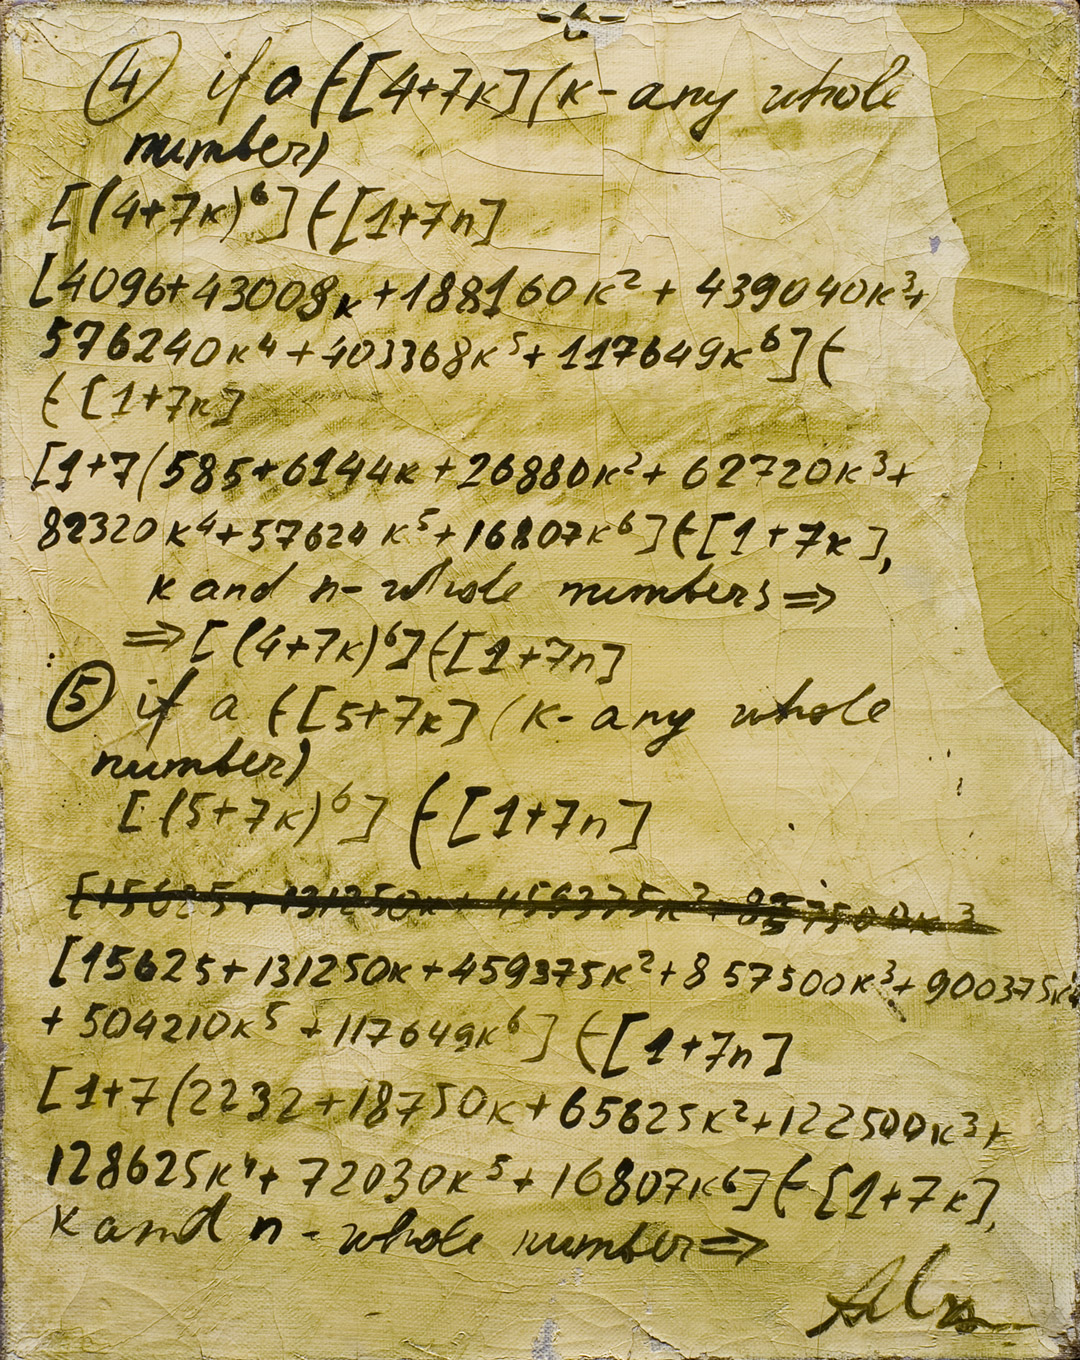 -6-
④ if a ∈[4+7k](k-any whole
number)
[(4+7k)⁶]∈[1+7n]
[4096+43008k+188160k²+439040k³+
576240k⁴+403368k⁵+117649k⁶]∈
∈[1+7k]
[1+7(585+6144k+26880k²+62720k³+
82320k⁴+57624k⁵+16807k⁶]∈[1+7k],
k and n-whole numbers⇒
⇒[(4+7k)⁶]∈[1+7n]
⑤ if a ∈[5+7k](k-any whole
number)
[(5+7k)⁶]∈[1+7n]
[15625+131250k+459375k²+857500k³
[15625+131250k+459375k²+857500k³+900375k⁴
+504210k⁵+117649k⁶]∈[1+7n]
[1+7(2232+18750k+65625k²+122500k³+
128625k⁴+72030k⁵+16807k⁶]∈[1+7k],
k and n-whole number⇒